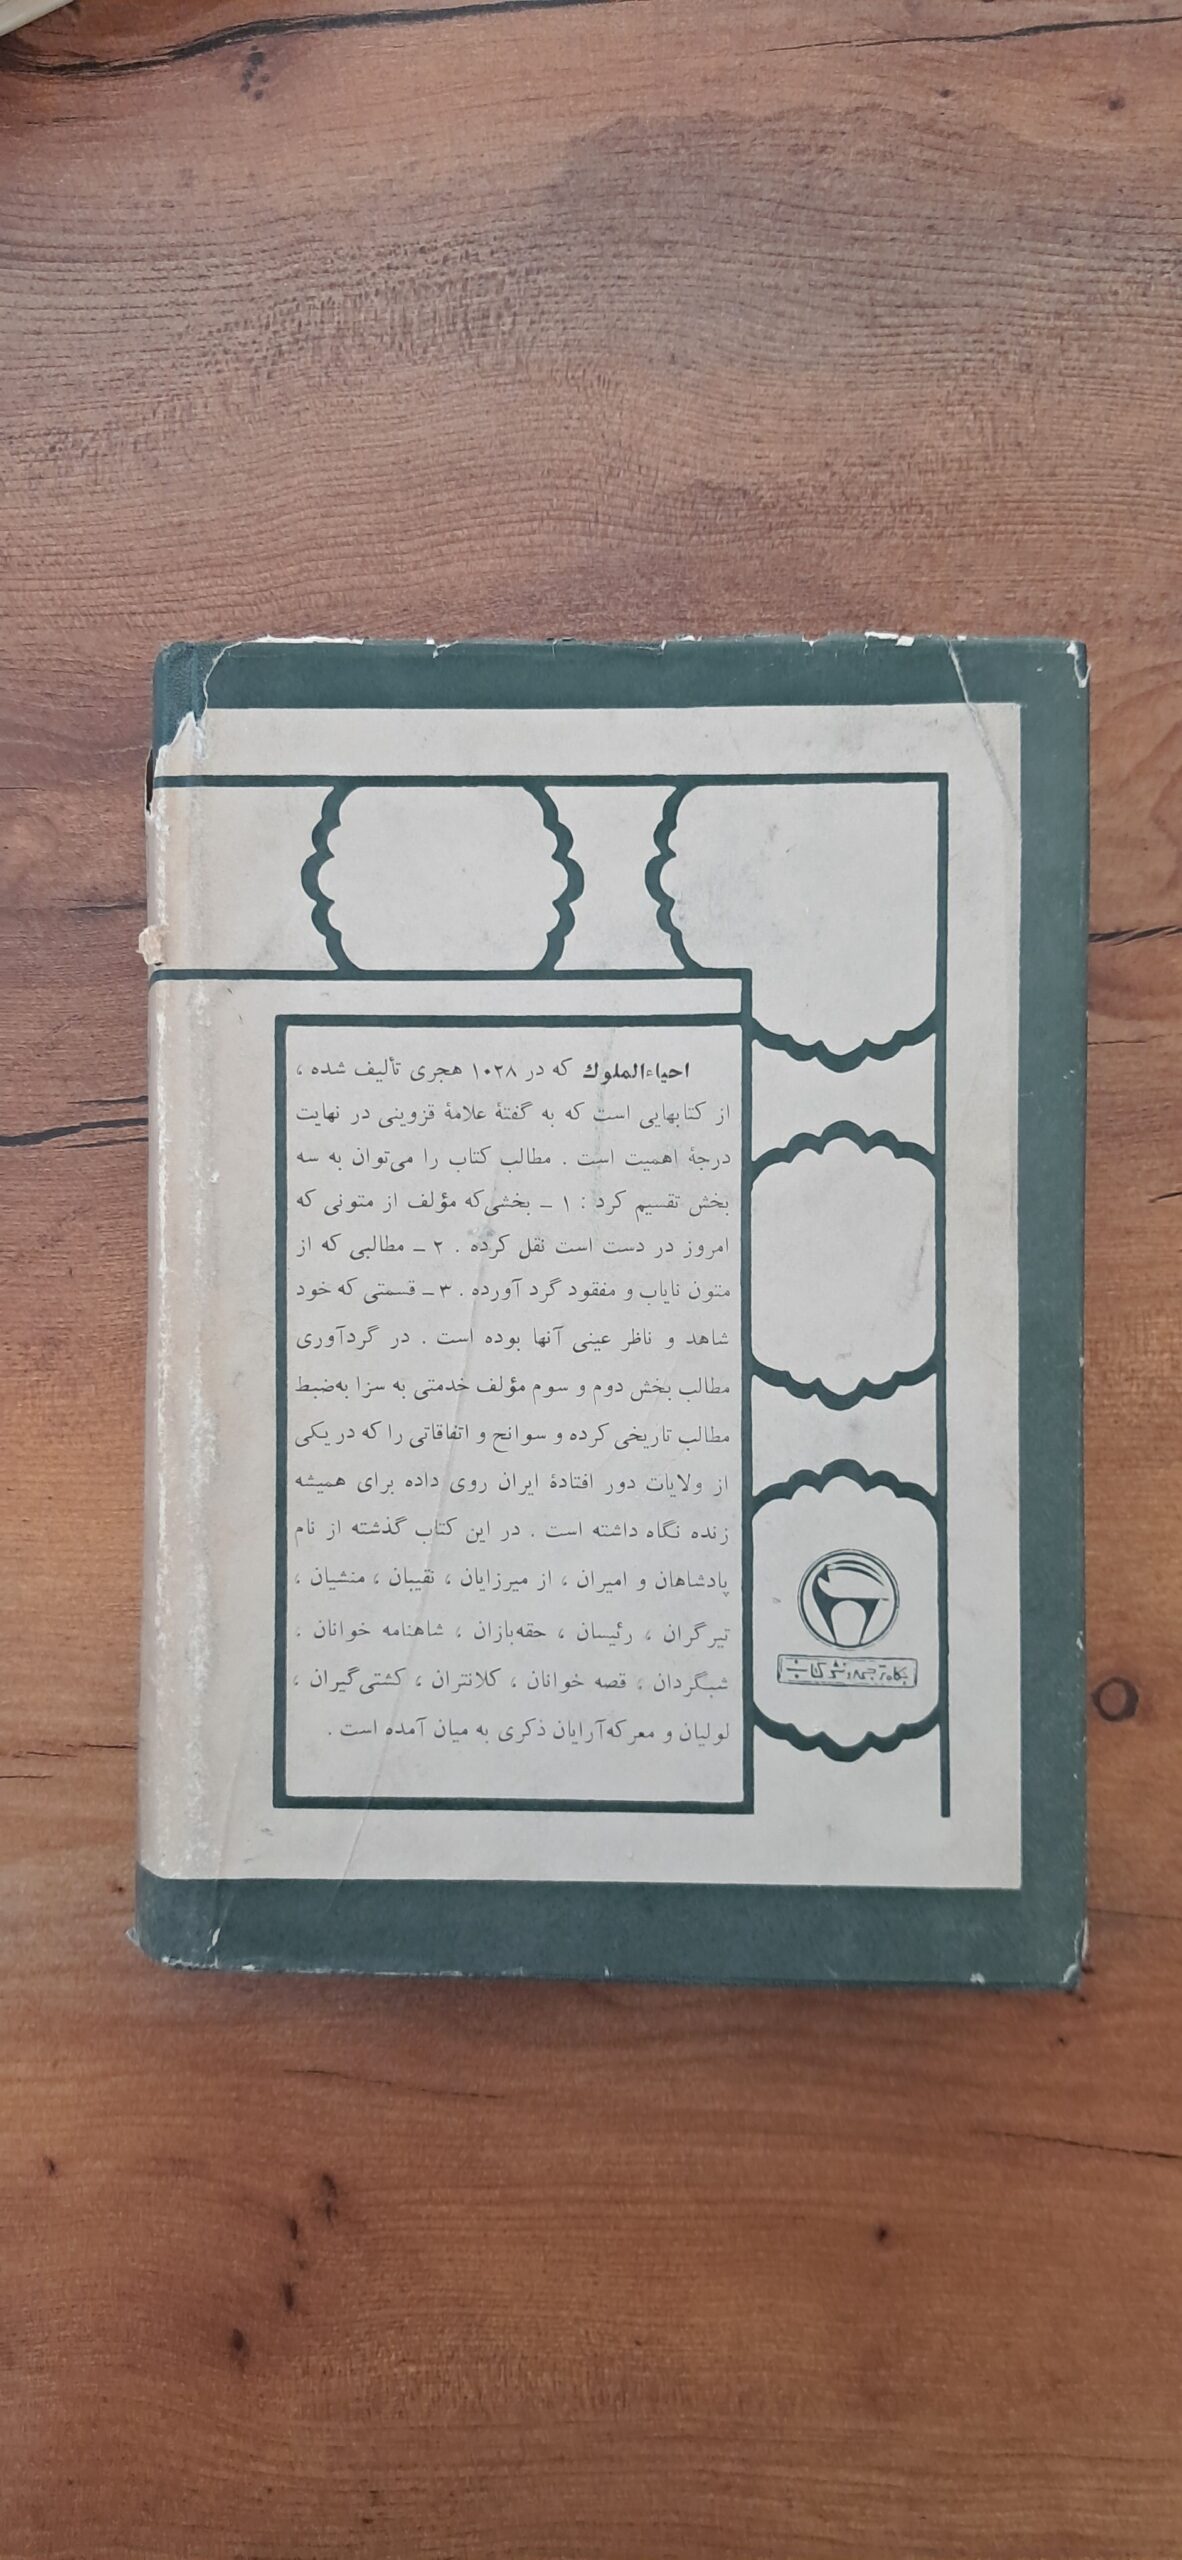 احیاءالملوك که در ۱۰۲۸ هجری تألیف شده ،
از کتابهایی است که به گفتهٔ علامهٔ قزوینی در نهایت
درجهٔ اهمیت است . مطالب کتاب را می‌توان به سه
بخش تقسیم کرد : ۱ ــ بخشی‌که مؤلف از متونی که
امروز در دست است نقل کرده . ۲ ــ مطالبی که از
متون نایاب و مفقود گرد آورده . ۳ ــ قسمتی که خود
شاهد و ناظر عینی آنها بوده است . در گردآوری
مطالب بخش دوم و سوم مؤلف خدمتی به سزا به‌ضبط
مطالب تاریخی کرده و سوانح و اتفاقاتی را که در یکی
از ولایات دور افتادهٔ ایران روی داده برای همیشه
زنده نگاه داشته است . در این کتاب گذشته از نام
پادشاهان و امیران ، از میرزایان ، نقیبان ، منشیان ،
تیرگران ، رئیسان ، حقه‌بازان ، شاهنامه خوانان ،
شبگردان ، قصه خوانان ، کلانتران ، کشتی‌گیران ،
لولیان و معرکه‌آرایان ذکری به میان آمده است .
بنگاه ترجمه و نشر کتاب